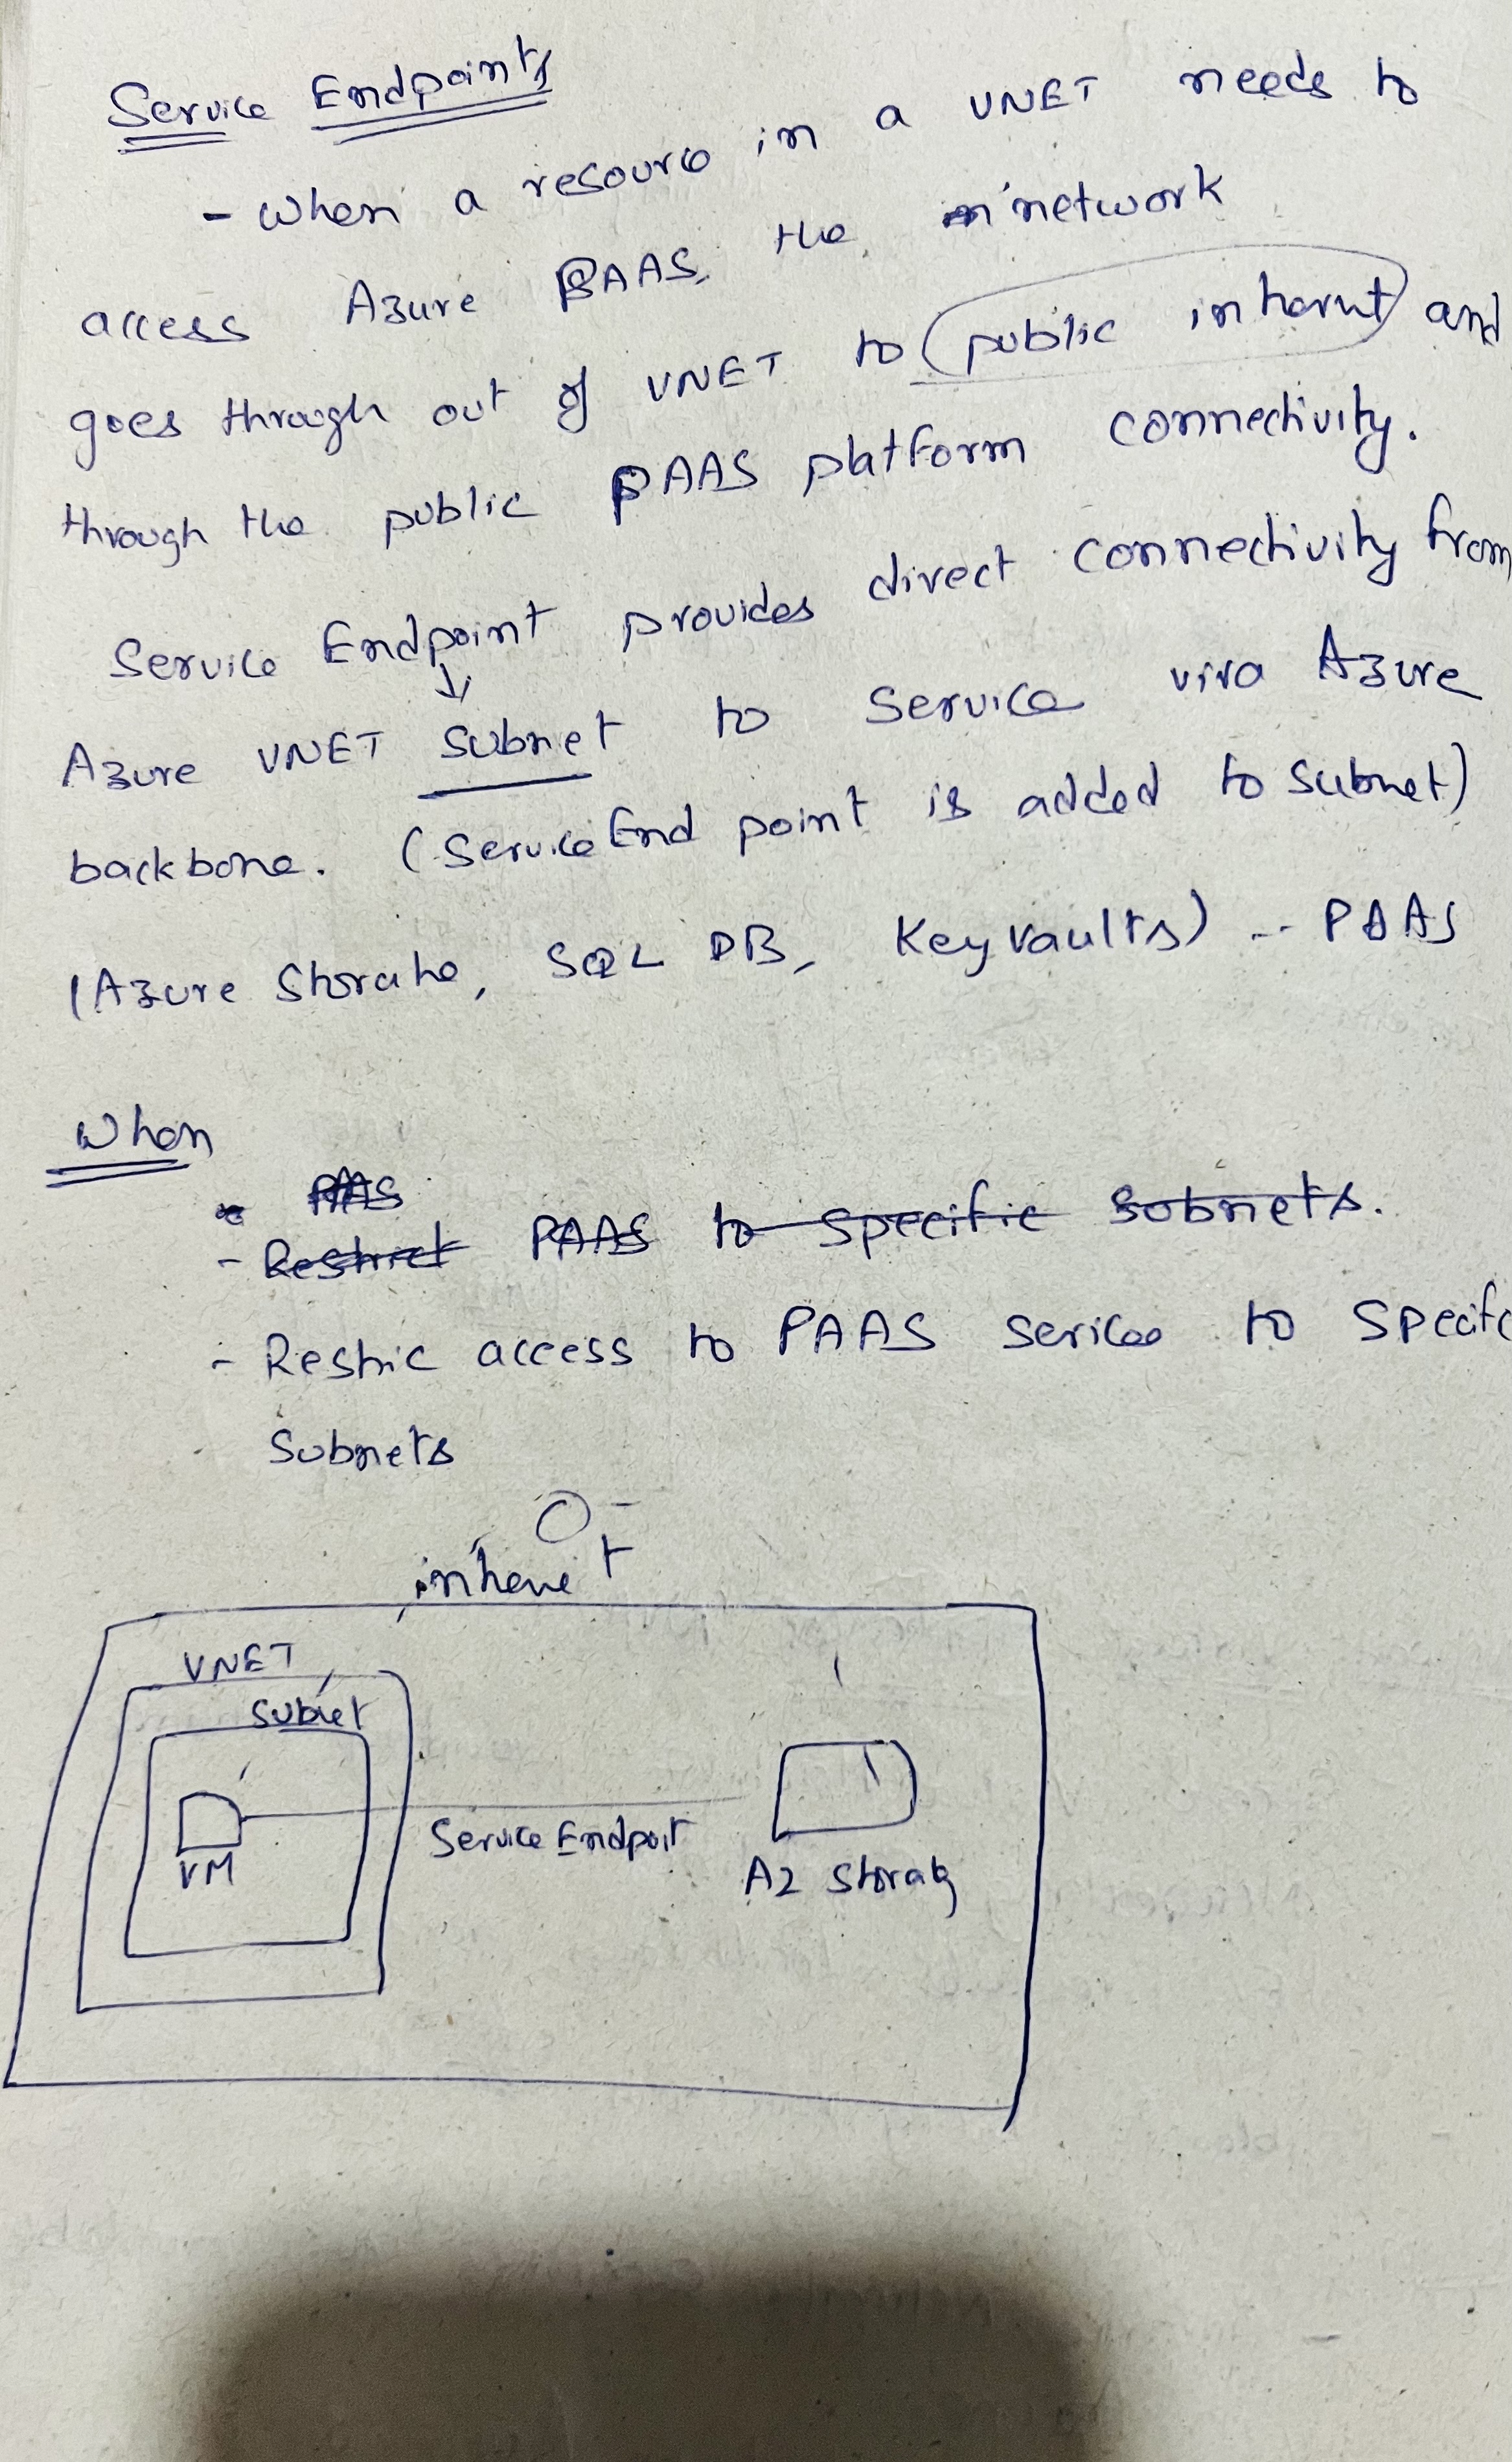 Service Endpoints
- when a resource in a VNET needs to
access Azure PAAS, the network
goes through out of VNET to public internt and
through the public PAAS platform connectivity.
Service Endpoint provides direct connectivity from
Azure VNET subnet to service viva Azure
backbone. (Service End point is added to subnet)
(Azure Storahe, SQL DB, Keyvaults) -- PAAS
When
PAAS
- Restrict PAAS to specific subnets.
- Restric access to PAAS serices to Specifc
Subnets
internet
VNET
subnet
VM
Service Endpoit
AZ Storag